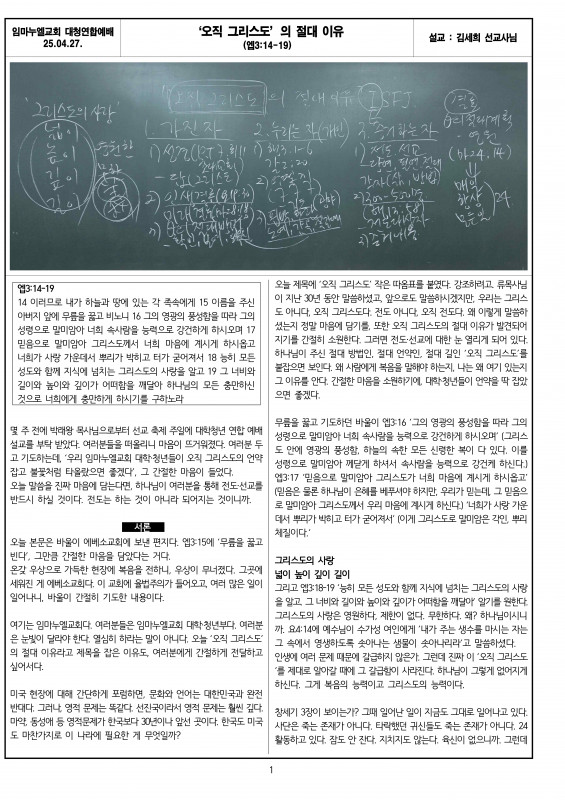 임마누엘교회 대청연합예배
25.04.27.
‘오직 그리스도’ 의 절대 이유
(엡3:14-19)
설교 : 김세희 선교사님
'그리스도의 사랑'
넓이
높이
깊이
길이
"오직 그리스도"의 절대 이유
ISFJ.
1. 가진 자
2. 누리는 자(개인)
갈2:20
3. 증거하는 자
1) 전도 선교
결론
(마24,14)
24
엡3:14-19
14 이러므로 내가 하늘과 땅에 있는 각 족속에게 15 이름을 주신
아버지 앞에 무릎을 꿇고 비노니 16 그의 영광의 풍성함을 따라 그의
성령으로 말미암아 너희 속사람을 능력으로 강건하게 하시오며 17
믿음으로 말미암아 그리스도께서 너희 마음에 계시게 하시옵고
너희가 사랑 가운데서 뿌리가 박히고 터가 굳어져서 18 능히 모든
성도와 함께 지식에 넘치는 그리스도의 사랑을 알고 19 그 너비와
길이와 높이와 깊이가 어떠함을 깨달아 하나님의 모든 충만하신
것으로 너희에게 충만하게 하시기를 구하노라
몇 주 전에 박태왕 목사님으로부터 선교 축제 주일에 대학청년 연합 예배
설교를 부탁 받았다. 여러분들을 떠올리니 마음이 뜨거워졌다. 여러분 두
고 기도하는데, ‘우리 임마누엘교회 대학·청년들이 오직 그리스도의 언약
잡고 불꽃처럼 타올랐으면 좋겠다’, 그 간절한 마음이 들었다.
오늘 말씀을 진짜 마음에 담는다면, 하나님이 여러분을 통해 전도·선교를
반드시 하실 것이다. 전도는 하는 것이 아니라 되어지는 것이니까.
서론
오늘 본문은 바울이 에베소교회에 보낸 편지다. 엡3:15에 ‘무릎을 꿇고
빈다’, 그만큼 간절한 마음을 담았다는 거다.
온갖 우상으로 가득한 현장에 복음을 전하니, 우상이 무너졌다. 그곳에
세워진 게 에베소교회다. 이 교회에 율법주의가 들어오고, 여러 많은 일이
일어나니, 바울이 간절히 기도한 내용이다.
여기는 임마누엘교회다. 여러분들은 임마누엘교회 대학·청년부다. 여러분
은 눈빛이 달라야 한다. 열심히 하라는 말이 아니다. 오늘 ‘오직 그리스도’
의 절대 이유라고 제목을 잡은 이유도, 여러분에게 간절하게 전달하고
싶어서다.
미국 현장에 대해 간단하게 포럼하면, 문화와 언어는 대한민국과 완전
반대다. 그러나, 영적 문제는 똑같다. 선진국이라서 영적 문제는 훨씬 깊다.
마약, 동성애 등 영적문제가 한국보다 30년이나 앞선 곳이다. 한국도 미국
도 마찬가지로 이 나라에 필요한 게 무엇일까?
오늘 제목에 ‘오직 그리스도’ 작은 따옴표를 붙였다. 강조하려고. 류목사님
이 지난 30년 동안 말씀하셨고, 앞으로도 말씀하시겠지만, 우리는 그리스
도 아니다, 오직 그리스도다. 전도 아니다, 오직 전도다. 왜 이렇게 말씀하
셨는지 정말 마음에 담기를, 또한 오직 그리스도의 절대 이유가 발견되어
지기를 간절히 소원한다. 그러면 전도·선교에 대한 눈 열리게 되어 있다.
하나님이 주신 절대 방법인, 절대 언약인, 절대 길인 ‘오직 그리스도’를
붙잡으면 보인다. 왜 사람에게 복음을 말해야 하는지, 나는 왜 여기 있는지
그 이유를 안다. 간절한 마음을 소원하기에, 대학·청년들이 언약을 딱 잡았
으면 좋겠다.
무릎을 꿇고 기도하던 바울이 엡3:16 ‘그의 영광의 풍성함을 따라 그의
성령으로 말미암아 너희 속사람을 능력으로 강건하게 하시오며’ (그리스
도 안에 영광의 풍성함, 하늘의 속한 모든 신령한 복이 다 있다. 이를
성령으로 말미암아 깨닫게 하셔서 속사람을 능력으로 강건케 하신다.)
엡3:17 ‘믿음으로 말미암아 그리스도께서 너희 마음에 계시게 하시옵고’
(믿음은 물론 하나님이 은혜를 베푸셔야 하지만, 우리가 믿는데, 그 믿음으
로 말미암아 그리스도께서 우리 마음에 계시게 하신다.) ‘너희가 사랑 가운
데서 뿌리가 박히고 터가 굳어져서’ (이게 그리스도로 말미암은 각인, 뿌리
체질이다.’
그리스도의 사랑
넓이 높이 깊이 길이
그리고 엡3:18-19 ‘능히 모든 성도와 함께 지식에 넘치는 그리스도의 사랑
을 알고, 그 너비와 길이와 높이와 깊이가 어떠함을 깨달아’ 알기를 원한다.
그리스도의 사랑은 영원하다, 제한이 없다. 무한하다. 왜? 하나님이시니
까. 요4:14에 예수님이 수가성 여인에게 ‘내가 주는 생수를 마시는 자는
그 속에서 영생하도록 솟아나는 샘물이 솟아나리라’고 말씀하셨다.
인생에 여러 문제 때문에 갈급하지 않은가. 그런데 진짜 이 ‘오직 그리스도
’를 제대로 알아갈 때에 그 갈급함이 사라진다. 하나님이 그렇게 없어지게
하신다. 그게 복음의 능력이고 그리스도의 능력이다.
창세기 3장이 보이는가? 그때 일어난 일이 지금도 그대로 일어나고 있다.
사단은 죽는 존재가 아니다. 타락했던 귀신들도 죽는 존재가 아니다. 24
활동하고 있다. 잠도 안 잔다. 지치지도 않는다. 육신이 없으니까. 그런데
1